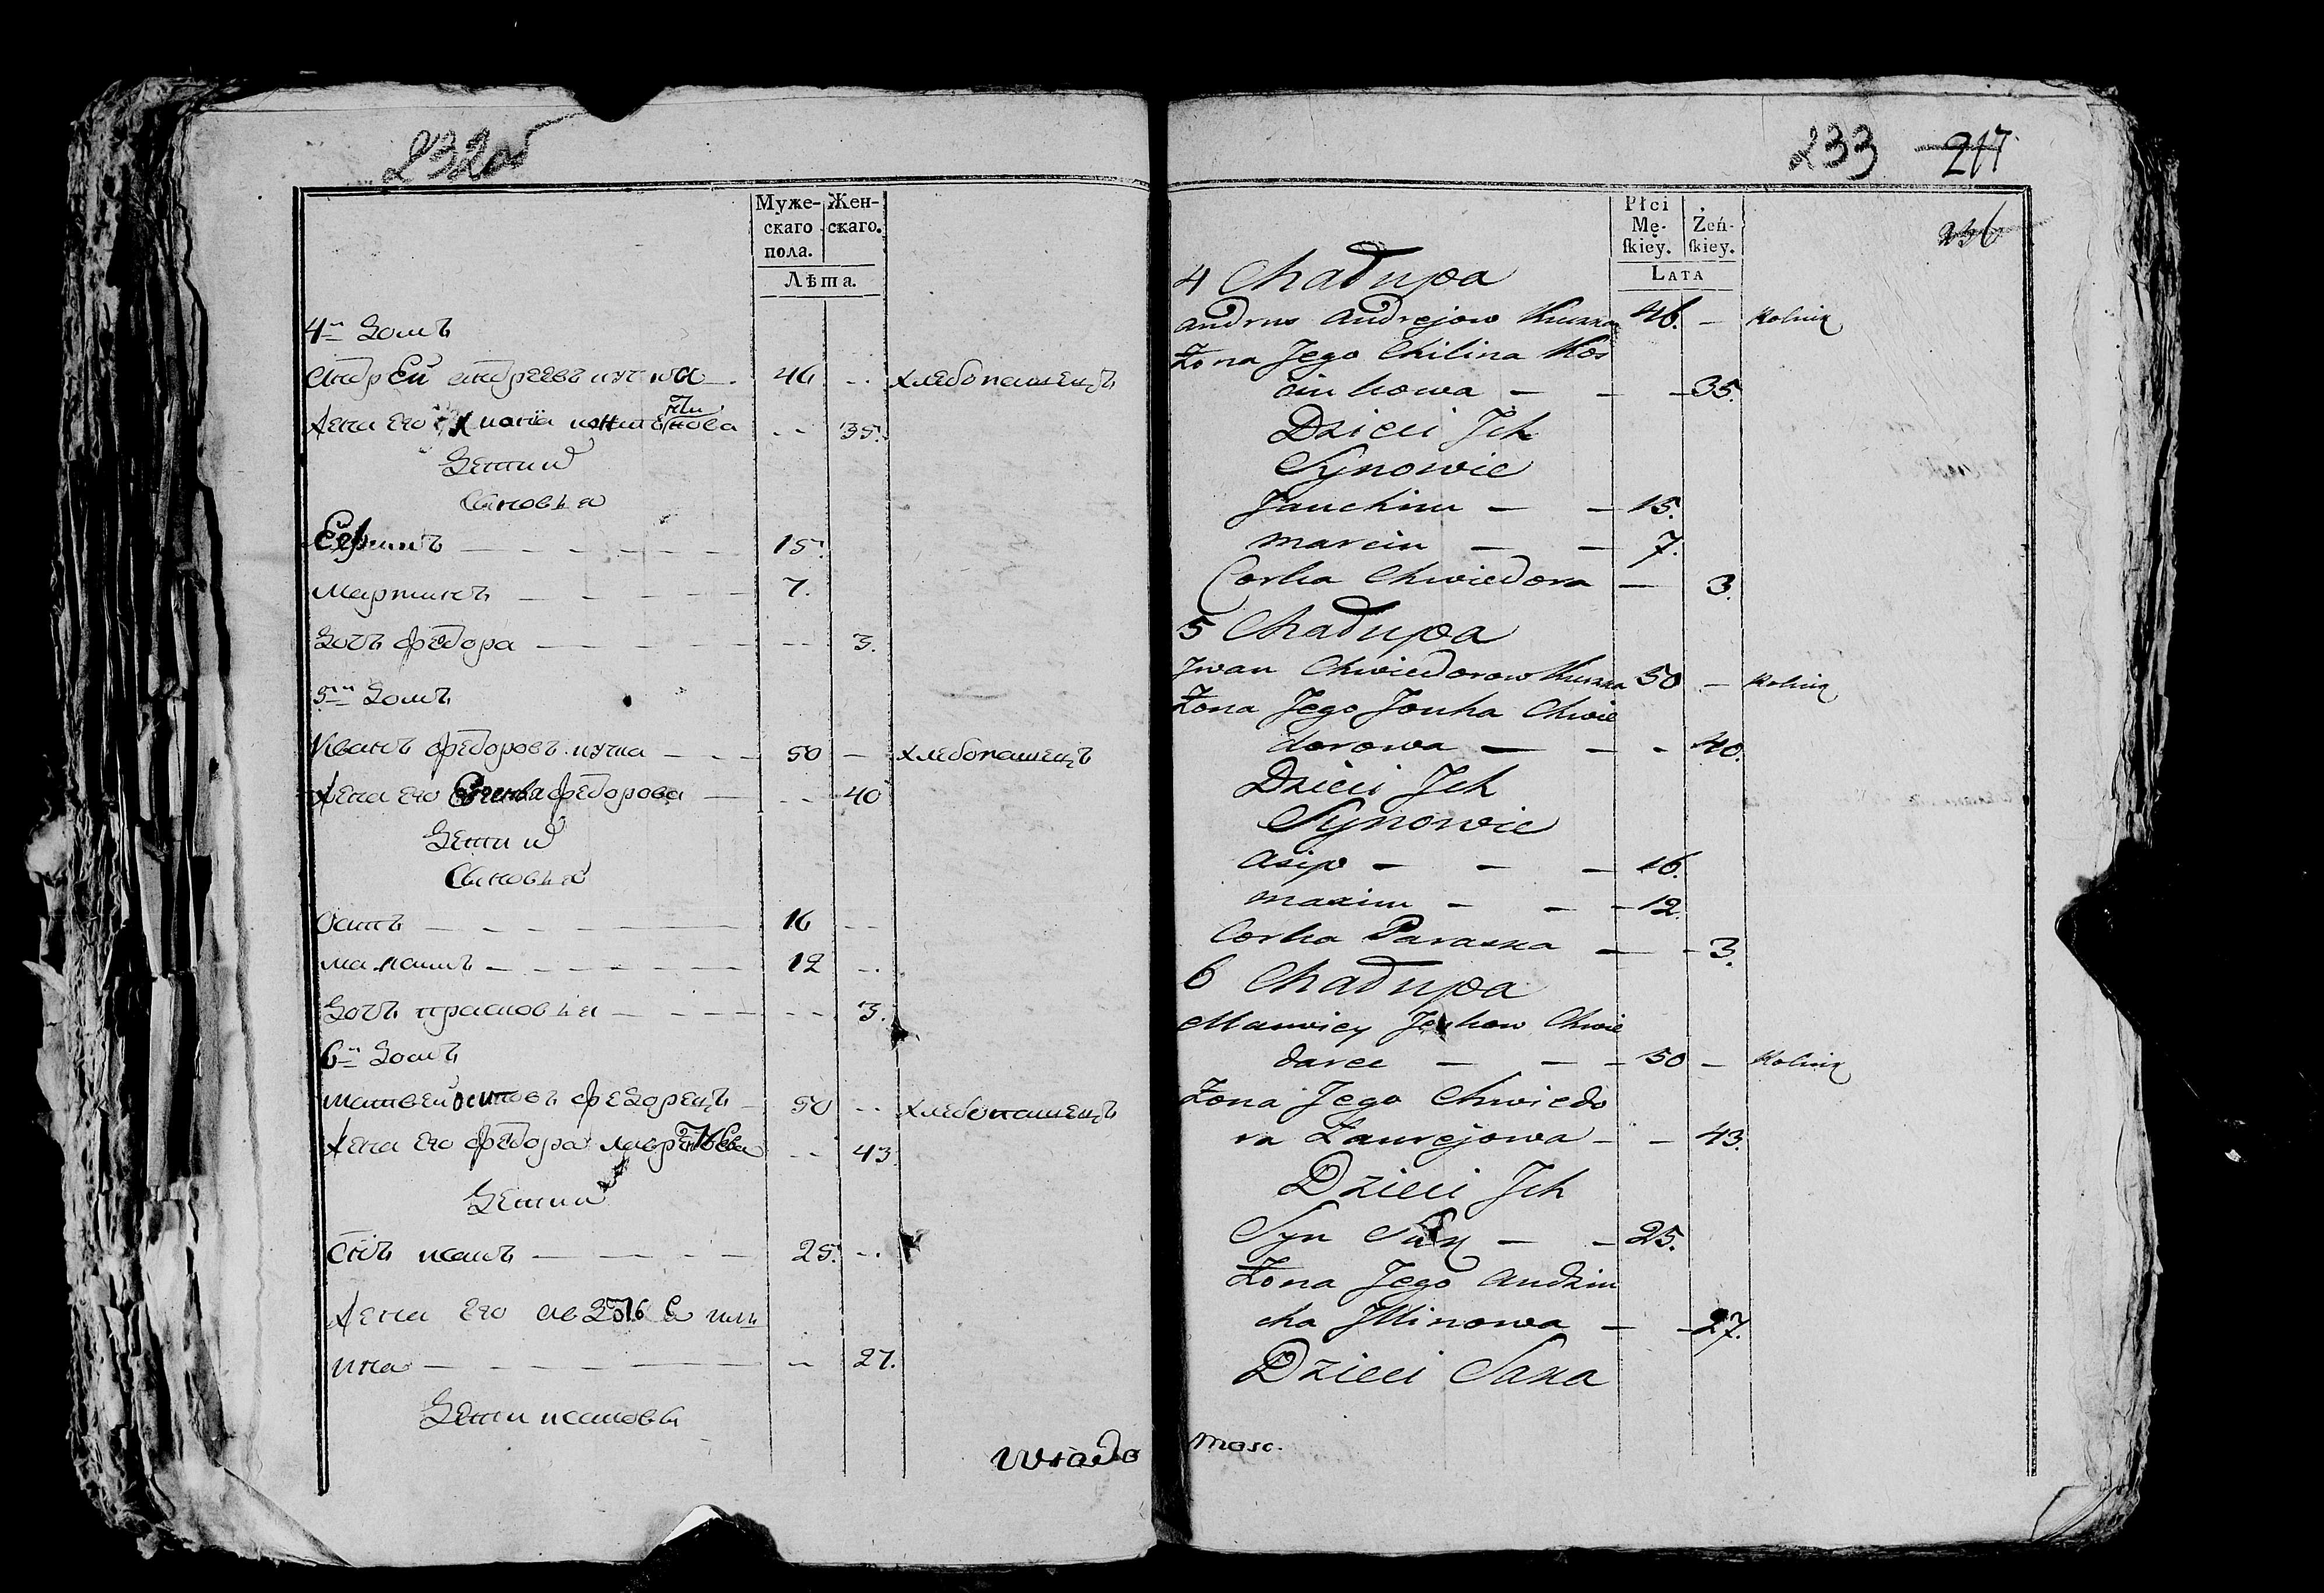 232об
Муже-
скаго
пола.
Жен-
скаго.
Лѣта.
4й домъ
андрей андреевъ кучка 46 хлебопашецъ
жена его 35.
дети
сыновья
Ефимъ 15.
мартинъ 7.
дочь федора 3.
5й домъ
Иванъ федоровъ кучка 50 хлебопашецъ
жена его федорова 40
дети
сыновья
осипъ 16
максимъ 12
дочь прасковья 3.
6й домъ
матвей осиповъ федорецъ 50 хлебопашецъ
жена его федора 43
дети
сынъ исакъ 25.
жена его
ина 27.
дети исаковы
233 217
236
Płci
Mę-
ſkiey.
Żeń-
ſkiey.
Lata
4 Chałupa
Andrus Andrejow Kuczka 46. Rolnik
Żona Jego Chilina Kos
ciukowa 35.
Dzieci Jch
Synowie
Jauchim 15.
Marcin 7.
Corka Chwiedora 3.
5 Chałupa
Jwan Chwiedorow Kuczka 50 Rolnik
Żona Jego Jouha Chwie
dorowa 40.
Dzieci Jch
Synowie
Asip 16.
Maxim 12.
Corka Paraska 3.
6 Chałupa
Mauwiey Chwie
darec 50 Rolnik
Żona Jego Chwiedo
ra Łaurejowa 43.
Dzieci Jch
Syn 25.
Żona Jego Audziu
cha Jllinowa 27.
Dzieci Saka